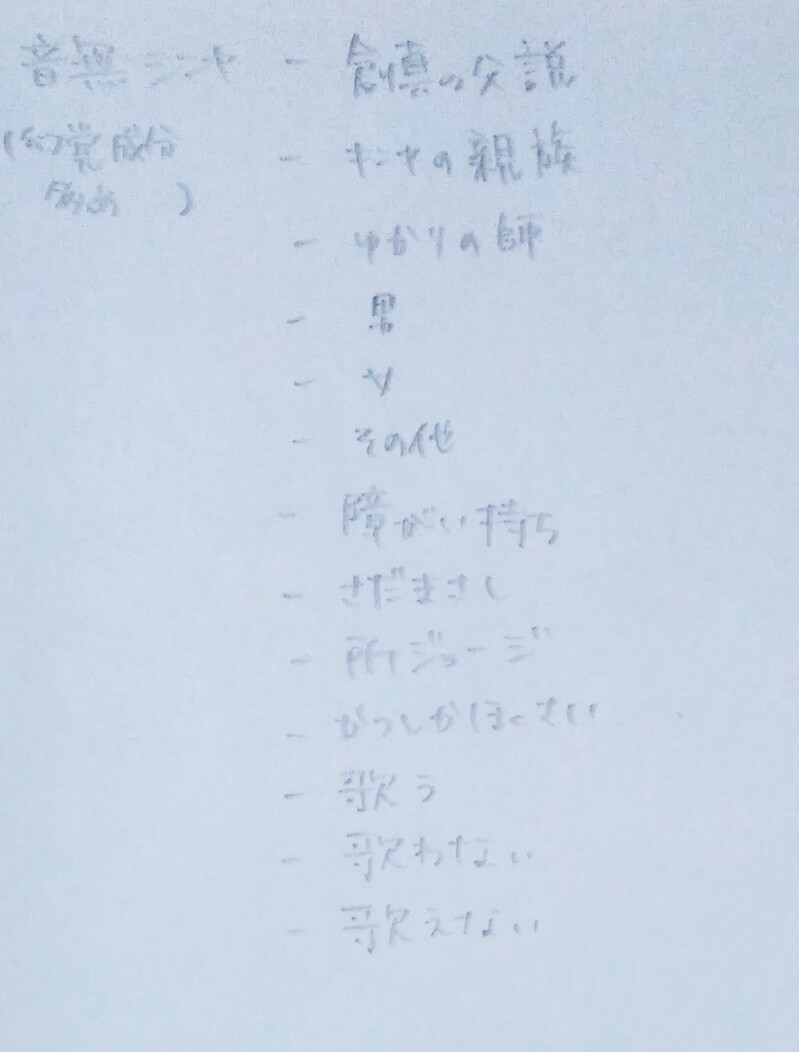 音無シンヤ - 創真の父説
(幻覚成分
多め)
- キンヤの親族
- ゆかりの師
- 男
- 女
- その他
- 障がい持ち
- さだまさし
- 所ジョージ
- かつしかほくさい
- 歌う
- 歌わない
- 歌えない